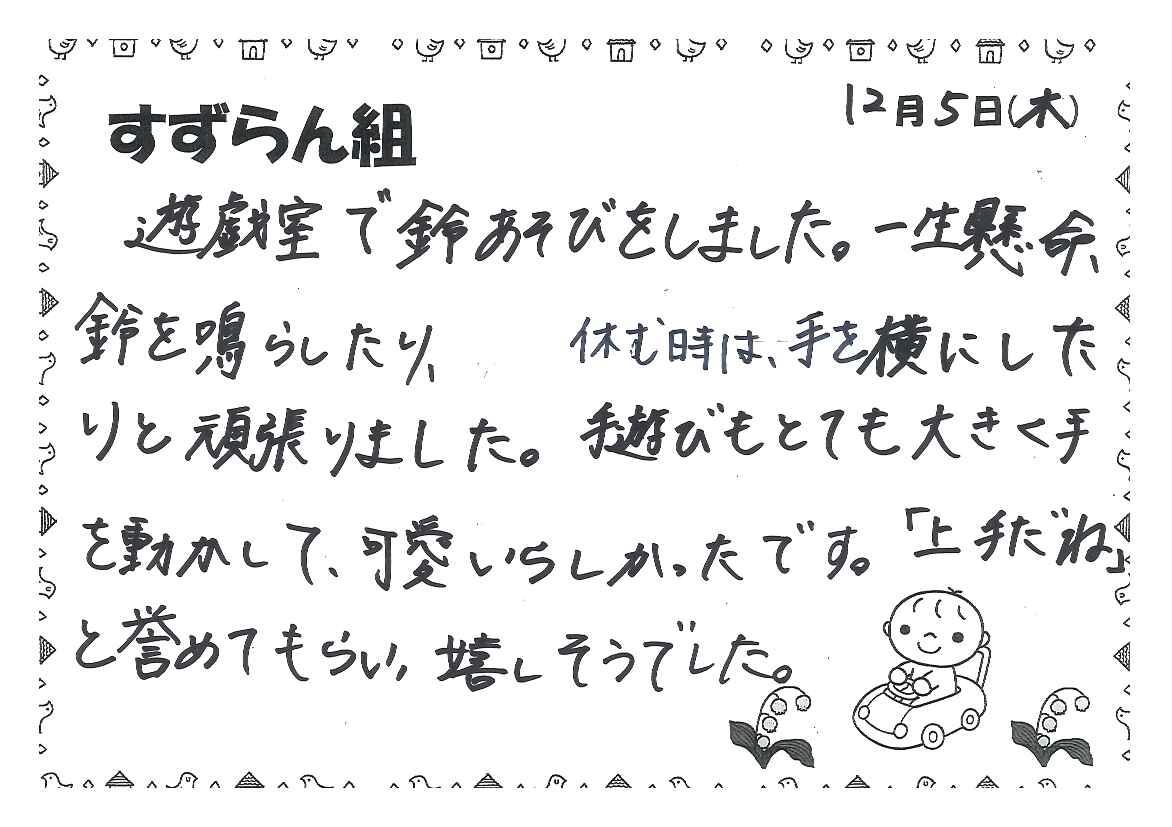 12月5日(木)
すずらん組
遊戯室で鈴あそびをしました。一生懸命、
鈴を鳴らしたり、 休む時は、手を横にした
りと頑張りました。手遊びもとても大きく手
を動かして、可愛いらしかったです。「上手だね」
と誉めてもらい、嬉しそうでした。